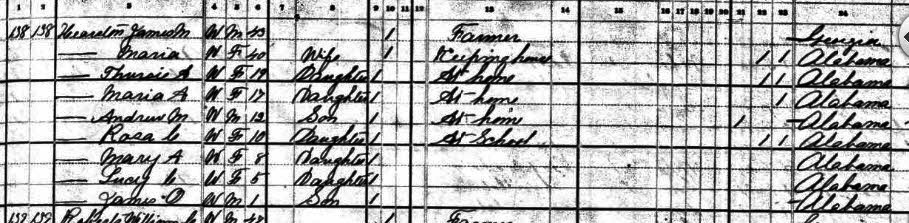 1 2 3 4 5 6 7 8 9 10 11 12 13 14 15 16 17 18 19 20 21 22 23 24
138 138 James M W M 43 1 Farmer Georgia
— Maria W F 40 Wife 1 Keeping house 1 1 Alabama
— A W F 19 Daughter 1 At home 1 1 Alabama
— Maria A W F 17 Daughter 1 At home 1 Alabama
— Andrew M W M 12 Son 1 At home 1 Alabama
— Rosa C W F 10 Daughter 1 At School 1 1 Alabama
— Mary A W F 8 Daughter 1 Alabama
— Lucy C W F 5 Daughter 1 Alabama
— O W M 1 Son 1 Alabama
139 William W M 1 Farmer